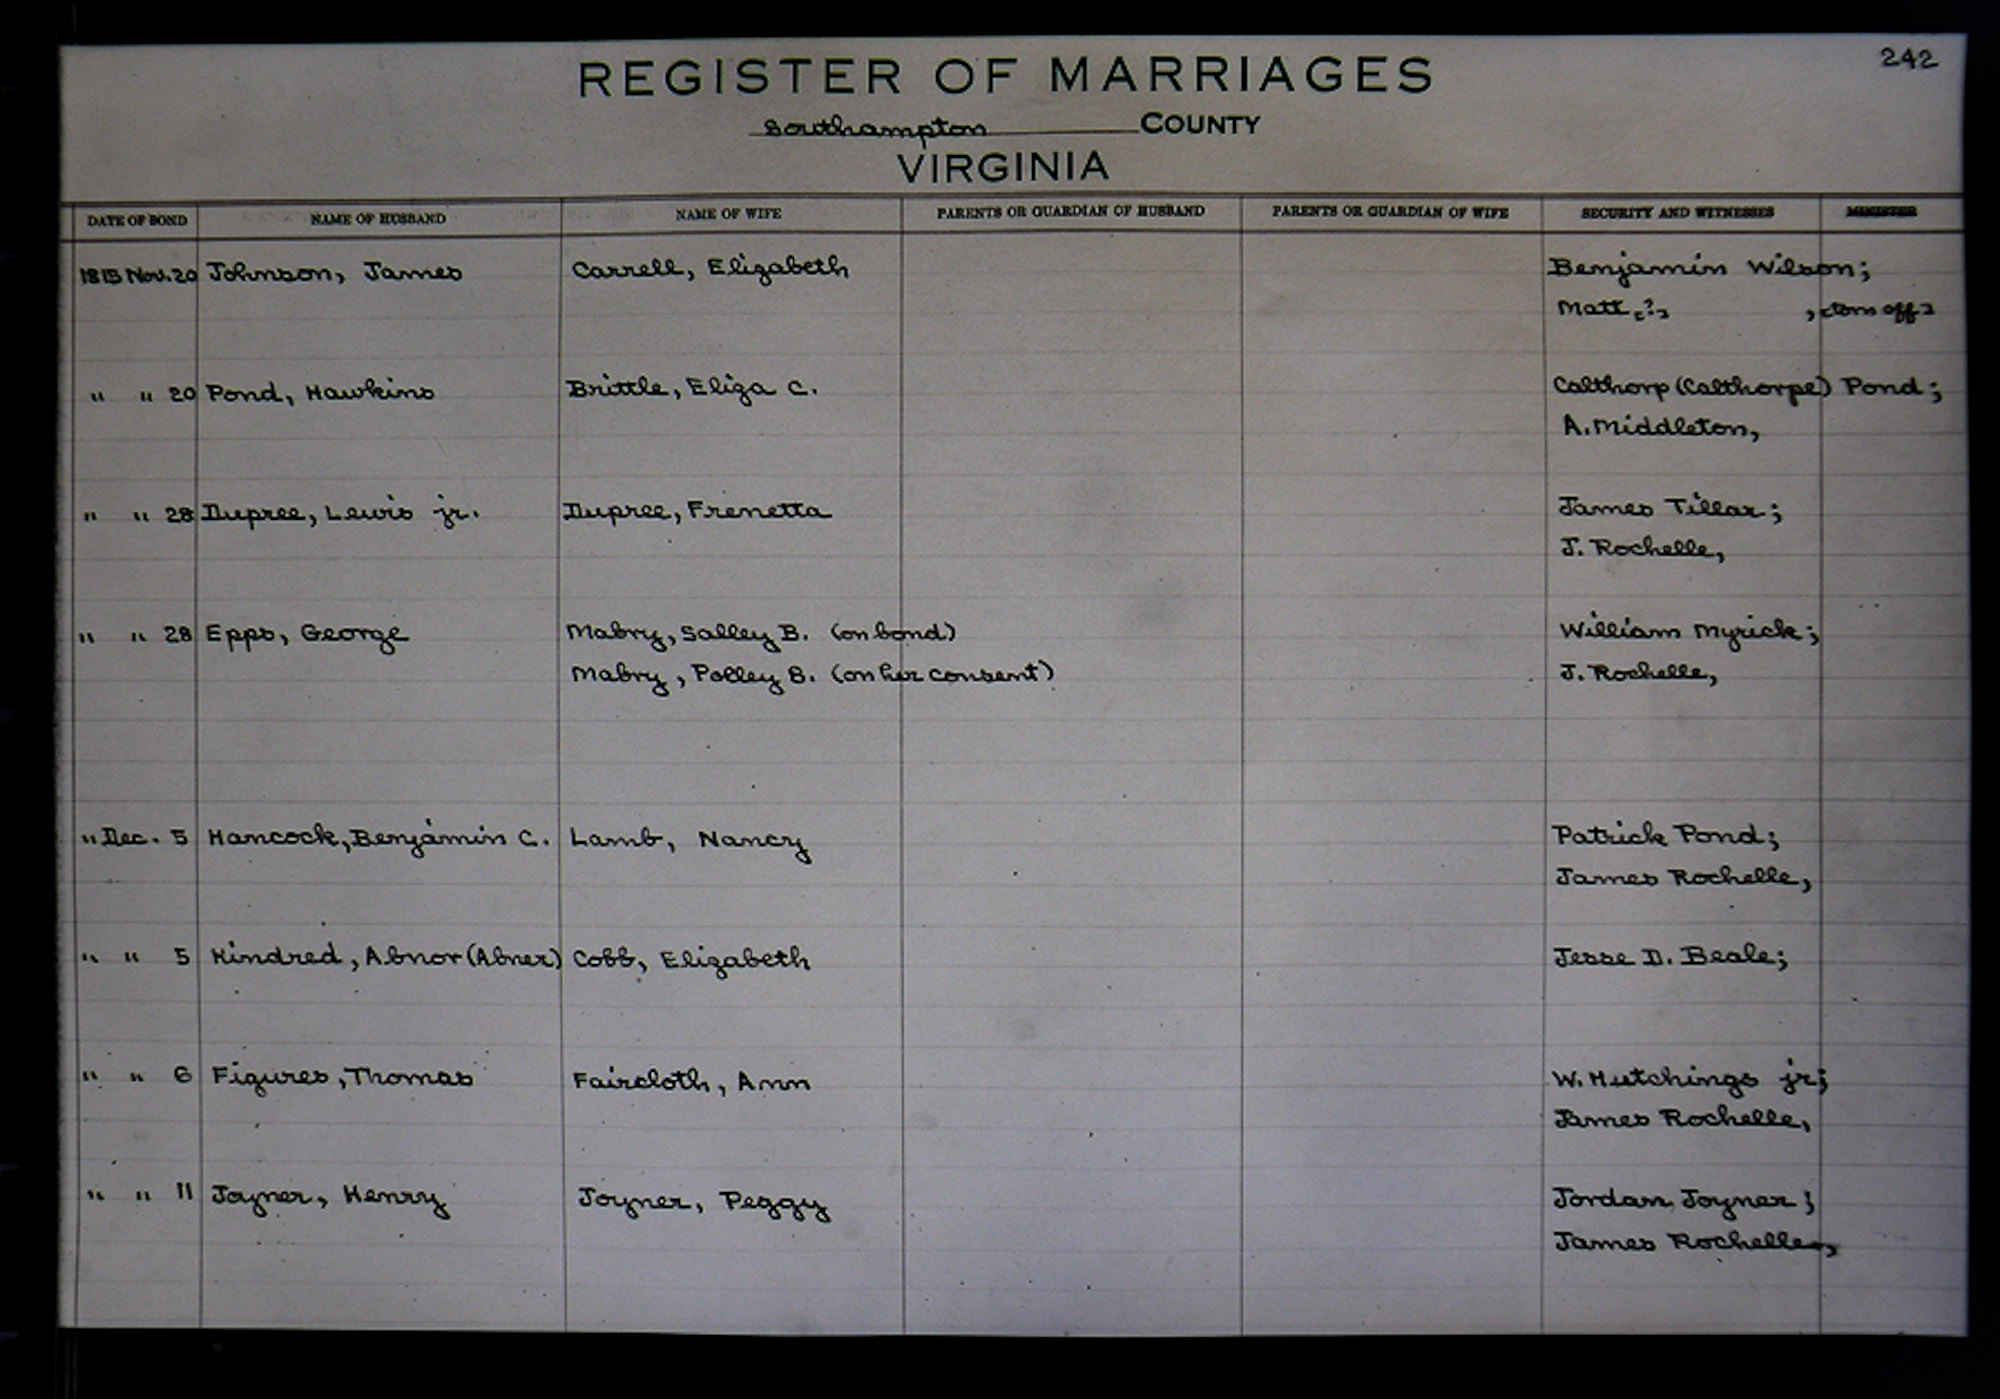 242
REGISTER OF MARRIAGES
Southampton COUNTY
VIRGINIA
DATE OF BOND NAME OF HUSBAND NAME OF WIFE PARENTS OR GUARDIAN OF HUSBAND PARENTS OR GUARDIAN OF WIFE SECURITY AND WITNESSES MINISTER
1815 Nov. 20 Johnson, James Carrell, Elizabeth Benjamin Wilson;
Matt [?] , [torn off]
" " 20 Pond, Hawkins Brittle, Eliza C. Calthorp (Calthorpe) Pond;
A. Middleton,
" " 28 Dupree, Lewis jr. Dupree, Frenetta James Tillar;
J. Rochelle,
" " 28 Epps, George Mabry, Salley B. (on bond) William Myrick;
Mabry, Polley B. (on her consent) J. Rochelle,
" Dec. 5 Hancock, Benjamin C. Lamb, Nancy Patrick Pond;
James Rochelle,
" " 5 Kindred, Abnor (Abner) Cobb, Elizabeth Jesse D. Beale;
" " 6 Figures, Thomas Faircloth, Ann W. Hutchings jr;
James Rochelle,
" " 11 Joyner, Henry Joyner, Peggy Jordan Joyner;
James Rochelle,